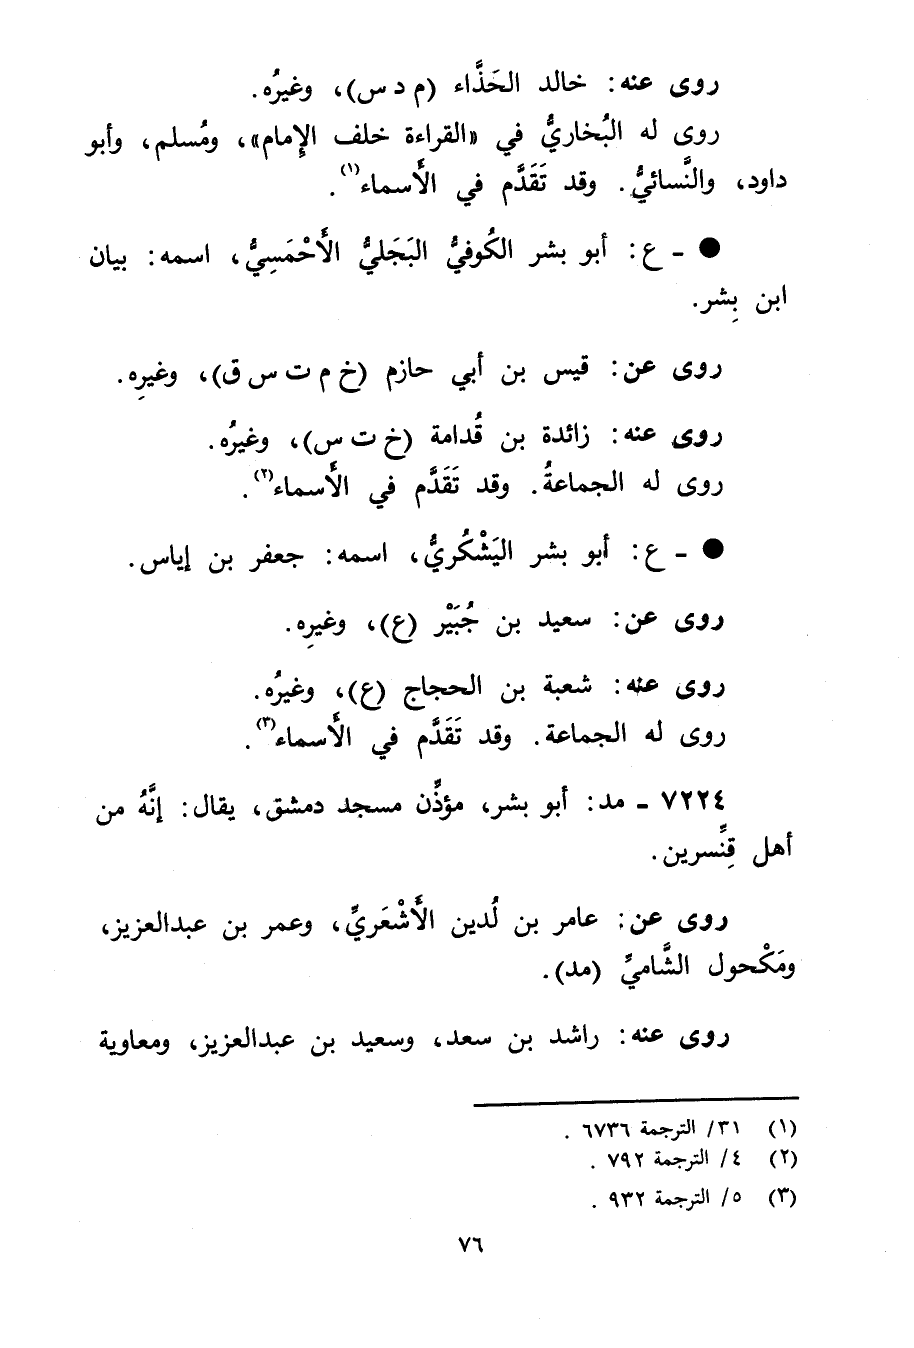 روى عنه: خالد الحَذَّاء (م د س)، وغيرُه.
روى له البُخاريُّ في «القراءة خلف الإِمام»، ومُسلم، وأبو
داود، والنَّسائيُّ. وقد تَقَدَّم في الأَسماء(١).
● ـ ع: أبو بشر الكُوفيُّ البَجَليُّ الأَحْمَسِيُّ، اسمه: بيان
ابن بِشر.
روى عن: قيس بن أبي حازم (خ م ت س ق)، وغيرِه.
روى عنه: زائدة بن قُدامة (خ ت س)، وغيرُه.
روى له الجماعةُ. وقد تَقَدَّم في الأَسماء(٢).
● ـ ع: أبو بشر اليَشْكُريُّ، اسمه: جعفر بن إياس.
روى عن: سعيد بن جُبَيْر (ع)، وغيرِه.
روى عنه: شعبة بن الحجاج (ع)، وغيرُه.
روى له الجماعة. وقد تَقَدَّم في الأَسماء(٣).
٧٢٢٤ ـ مد: أبو بشر، مؤذِّن مسجد دمشق، يقال: إنَّهُ من
أهل قِنِّسرين.
روى عن: عامر بن لُدين الأَشْعَريِّ، وعمر بن عبدالعزيز،
ومَكْحول الشَّاميِّ (مد).
روى عنه: راشد بن سعد، وسعيد بن عبدالعزيز، ومعاوية
(١) ٣١/ الترجمة ٦٧٣٦ .
(٢) ٤/ الترجمة ٧٩٢ .
(٣) ٥/ الترجمة ٩٣٢ .
٧٦